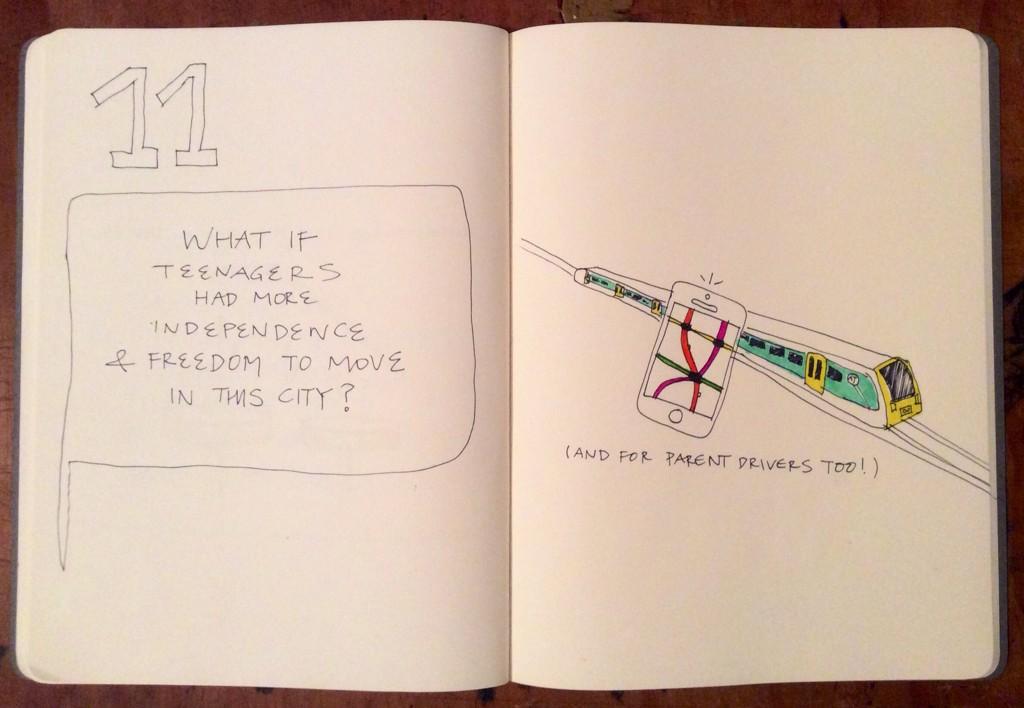 11
WHAT IF
TEENAGERS
HAD MORE
INDEPENDENCE
& FREEDOM TO MOVE
IN THIS CITY?
(AND FOR PARENT DRIVERS TOO!)